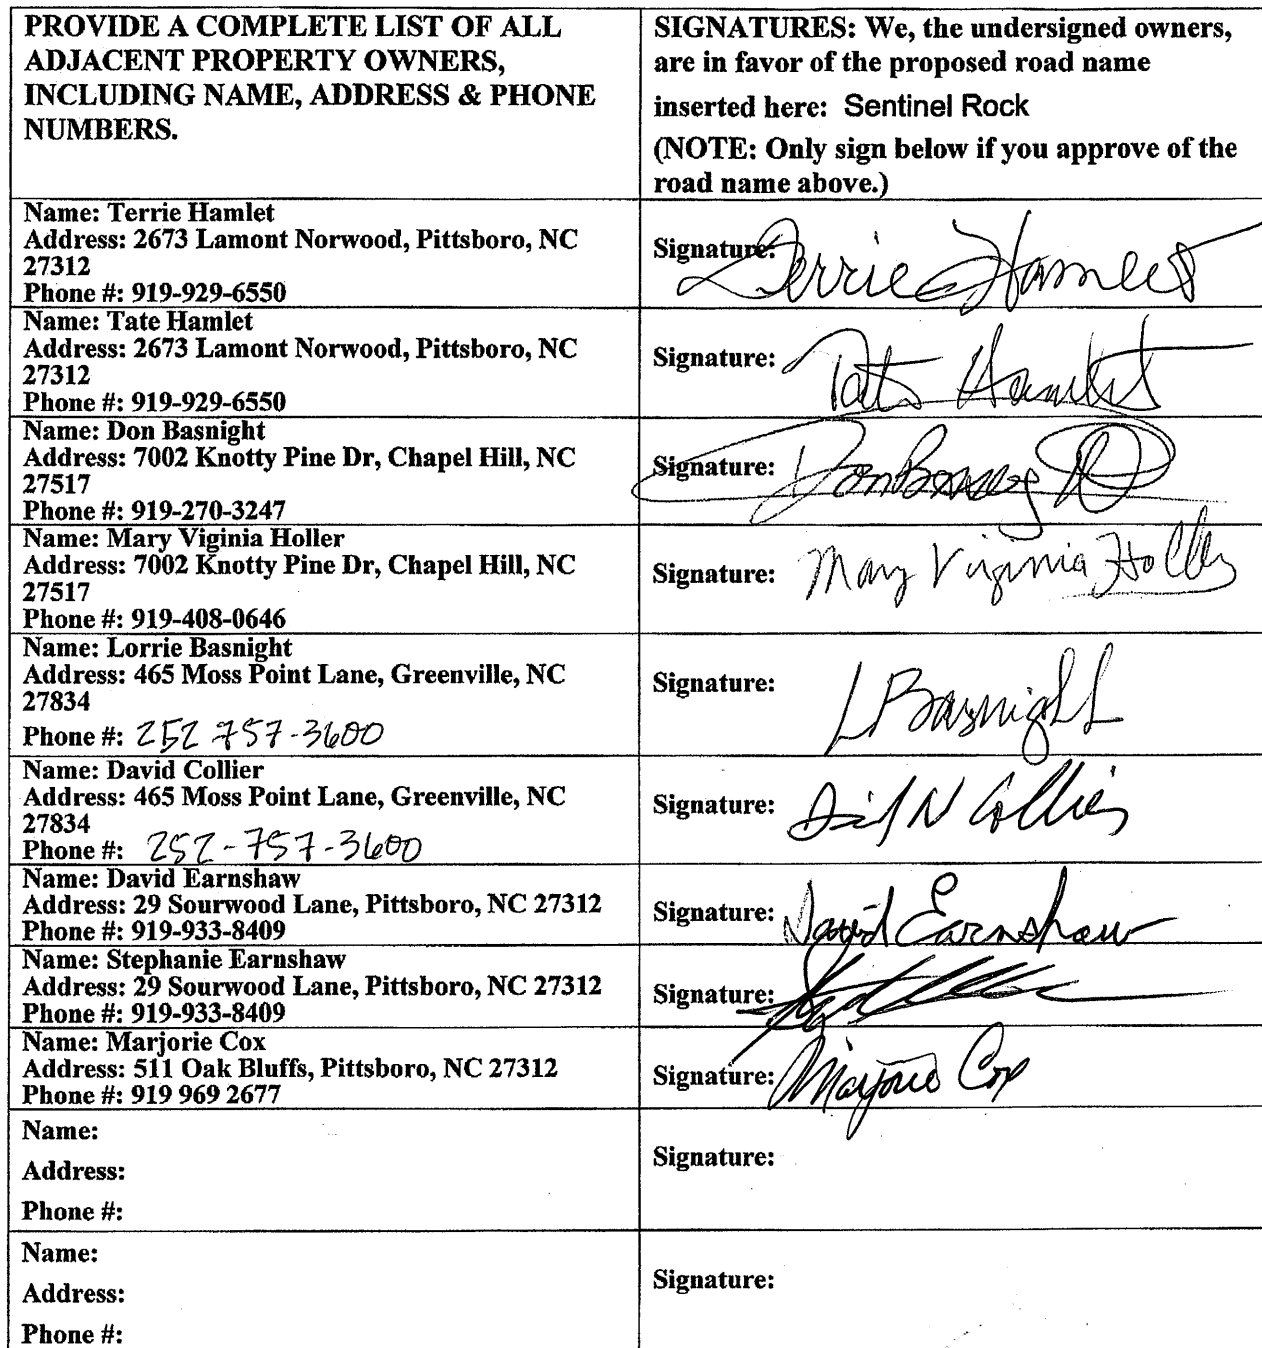 PROVIDE A COMPLETE LIST OF ALL
ADJACENT PROPERTY OWNERS,
INCLUDING NAME, ADDRESS & PHONE
NUMBERS.
SIGNATURES: We, the undersigned owners,
are in favor of the proposed road name
inserted here: Sentinel Rock
(NOTE: Only sign below if you approve of the
road name above.)
Name: Terrie Hamlet
Address: 2673 Lamont Norwood, Pittsboro, NC
27312
Phone #: 919-929-6550
Signature: Terrie Hamlet
Name: Tate Hamlet
Address: 2673 Lamont Norwood, Pittsboro, NC
27312
Phone #: 919-929-6550
Signature: Tate Hamlet
Name: Don Basnight
Address: 7002 Knotty Pine Dr, Chapel Hill, NC
27517
Phone #: 919-270-3247
Signature: Don Basnight
Name: Mary Viginia Holler
Address: 7002 Knotty Pine Dr, Chapel Hill, NC
27517
Phone #: 919-408-0646
Signature: Mary Virginia Holler
Name: Lorrie Basnight
Address: 465 Moss Point Lane, Greenville, NC
27834
Phone #: 252 757-3600
Signature: L Basnight
Name: David Collier
Address: 465 Moss Point Lane, Greenville, NC
27834
Phone #: 252-757-3600
Signature: David N Collier
Name: David Earnshaw
Address: 29 Sourwood Lane, Pittsboro, NC 27312
Phone #: 919-933-8409
Signature: David Earnshaw
Name: Stephanie Earnshaw
Address: 29 Sourwood Lane, Pittsboro, NC 27312
Phone #: 919-933-8409
Signature:
Name: Marjorie Cox
Address: 511 Oak Bluffs, Pittsboro, NC 27312
Phone #: 919 969 2677
Signature: Marjorie Cox
Name:
Address:
Phone #:
Signature:
Name:
Address:
Phone #:
Signature: